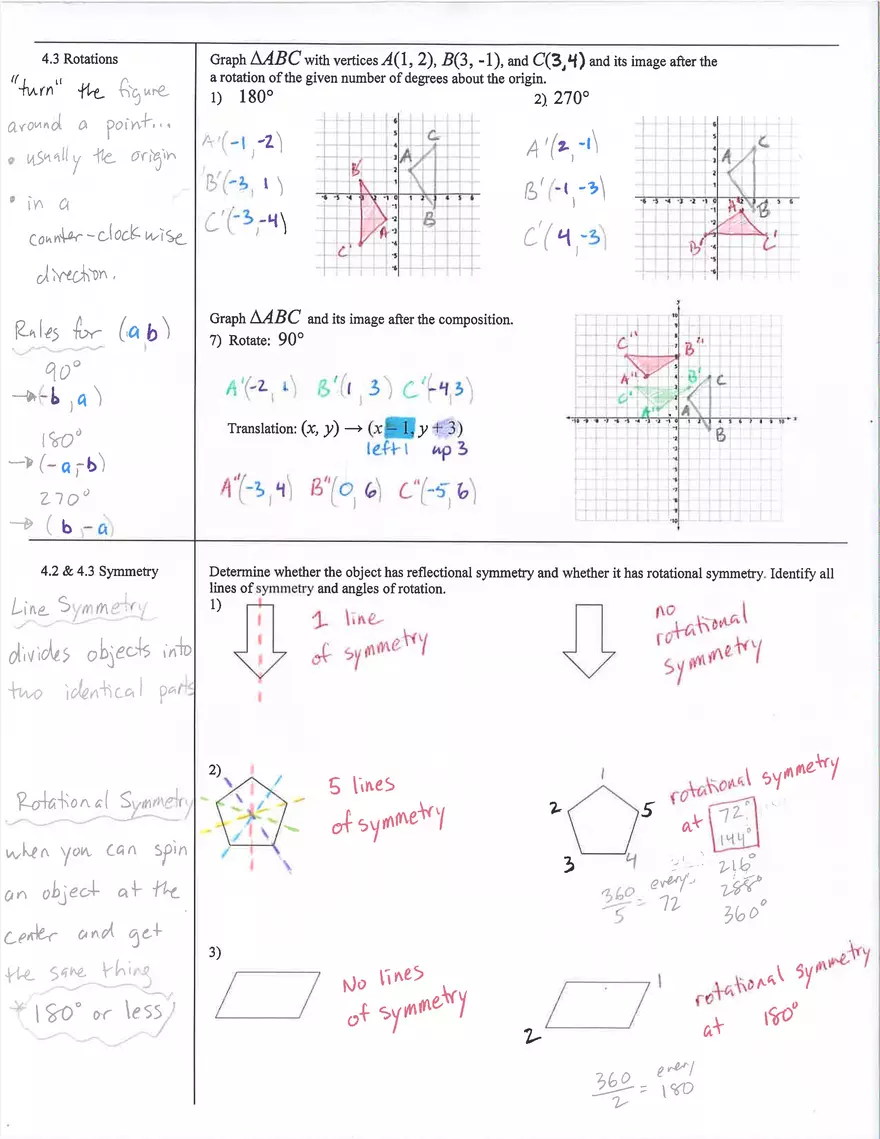 4.3 Rotations
"turn" the figure
around a point...
• usually the origin
• in a
counter-clockwise
direction.
Rules for (a,b)
90°
→(-b, a)
180°
→(-a,-b)
270°
→(b,-a)
Graph △ABC with vertices A(1, 2), B(3, -1), and C(3,4) and its image after the
a rotation of the given number of degrees about the origin.
1) 180°
A'(-1,-2)
B'(-3, 1)
C'(-3,-4)
A
B
C
A'
B'
C'
2) 270°
A'(2,-1)
B'(-1,-3)
C'(4,-3)
A
B
C
A'
B'
C'
Graph △ABC and its image after the composition.
7) Rotate: 90°
A'(-2, 1) B'(1, 3) C'(-4,3)
Translation: (x, y) → (x − 1, y + 3)
left 1 up 3
A"(-3,4) B"(0, 6) C"(-5,6)
C"
B"
A"
C'
B'
A'
A
B
C
4.2 & 4.3 Symmetry
Line Symmetry
divides objects into
two identical parts
Rotational Symmetry
when you can spin
an object at the
center and get
the same thing
*180° or less
Determine whether the object has reflectional symmetry and whether it has rotational symmetry. Identify all
lines of symmetry and angles of rotation.
1)
1 line
of symmetry
no
rotational
symmetry
2)
5 lines
of symmetry
1
2
3
4
5
rotational symmetry
at 72°
144°
216°
288°
360°
360/5 = every 72
3)
No lines
of symmetry
1
2
rotational symmetry
at 180°
360/2 = every 180